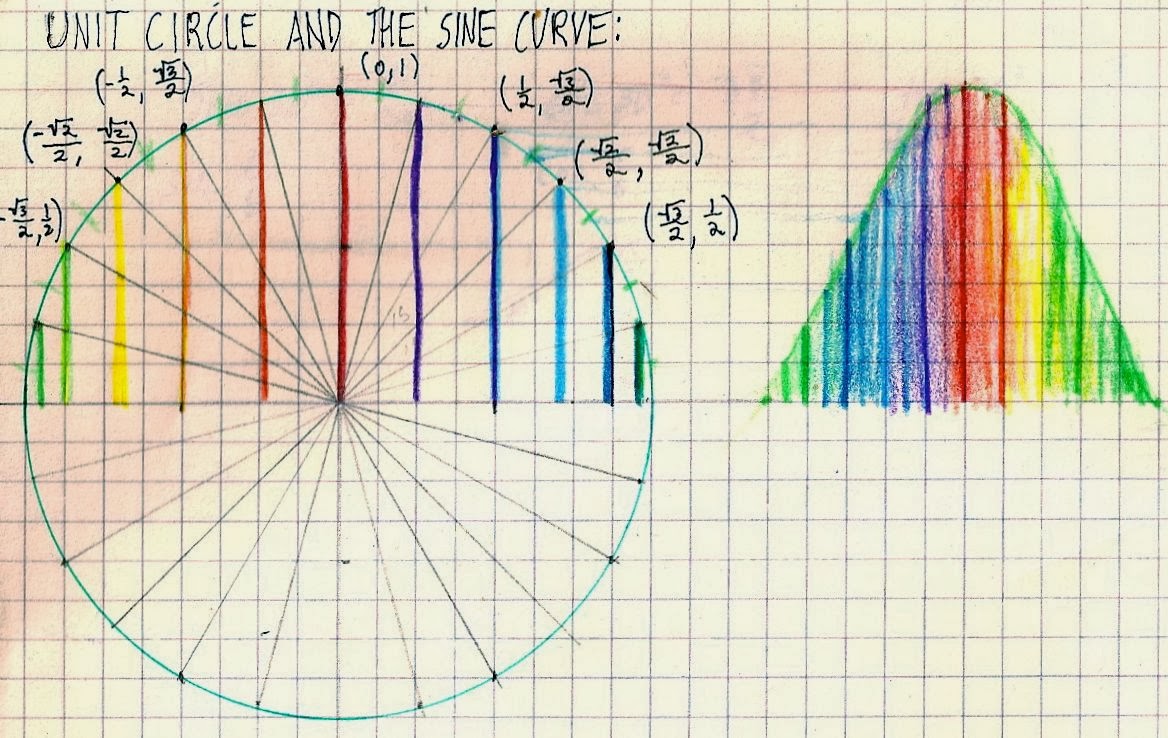 UNIT CIRCLE AND THE SINE CURVE:
(0,1)
(-1/2, √3/2)
(1/2, √3/2)
(-√2/2, √2/2)
(√2/2, √2/2)
-√3/2, 1/2)
(√3/2, 1/2)
15